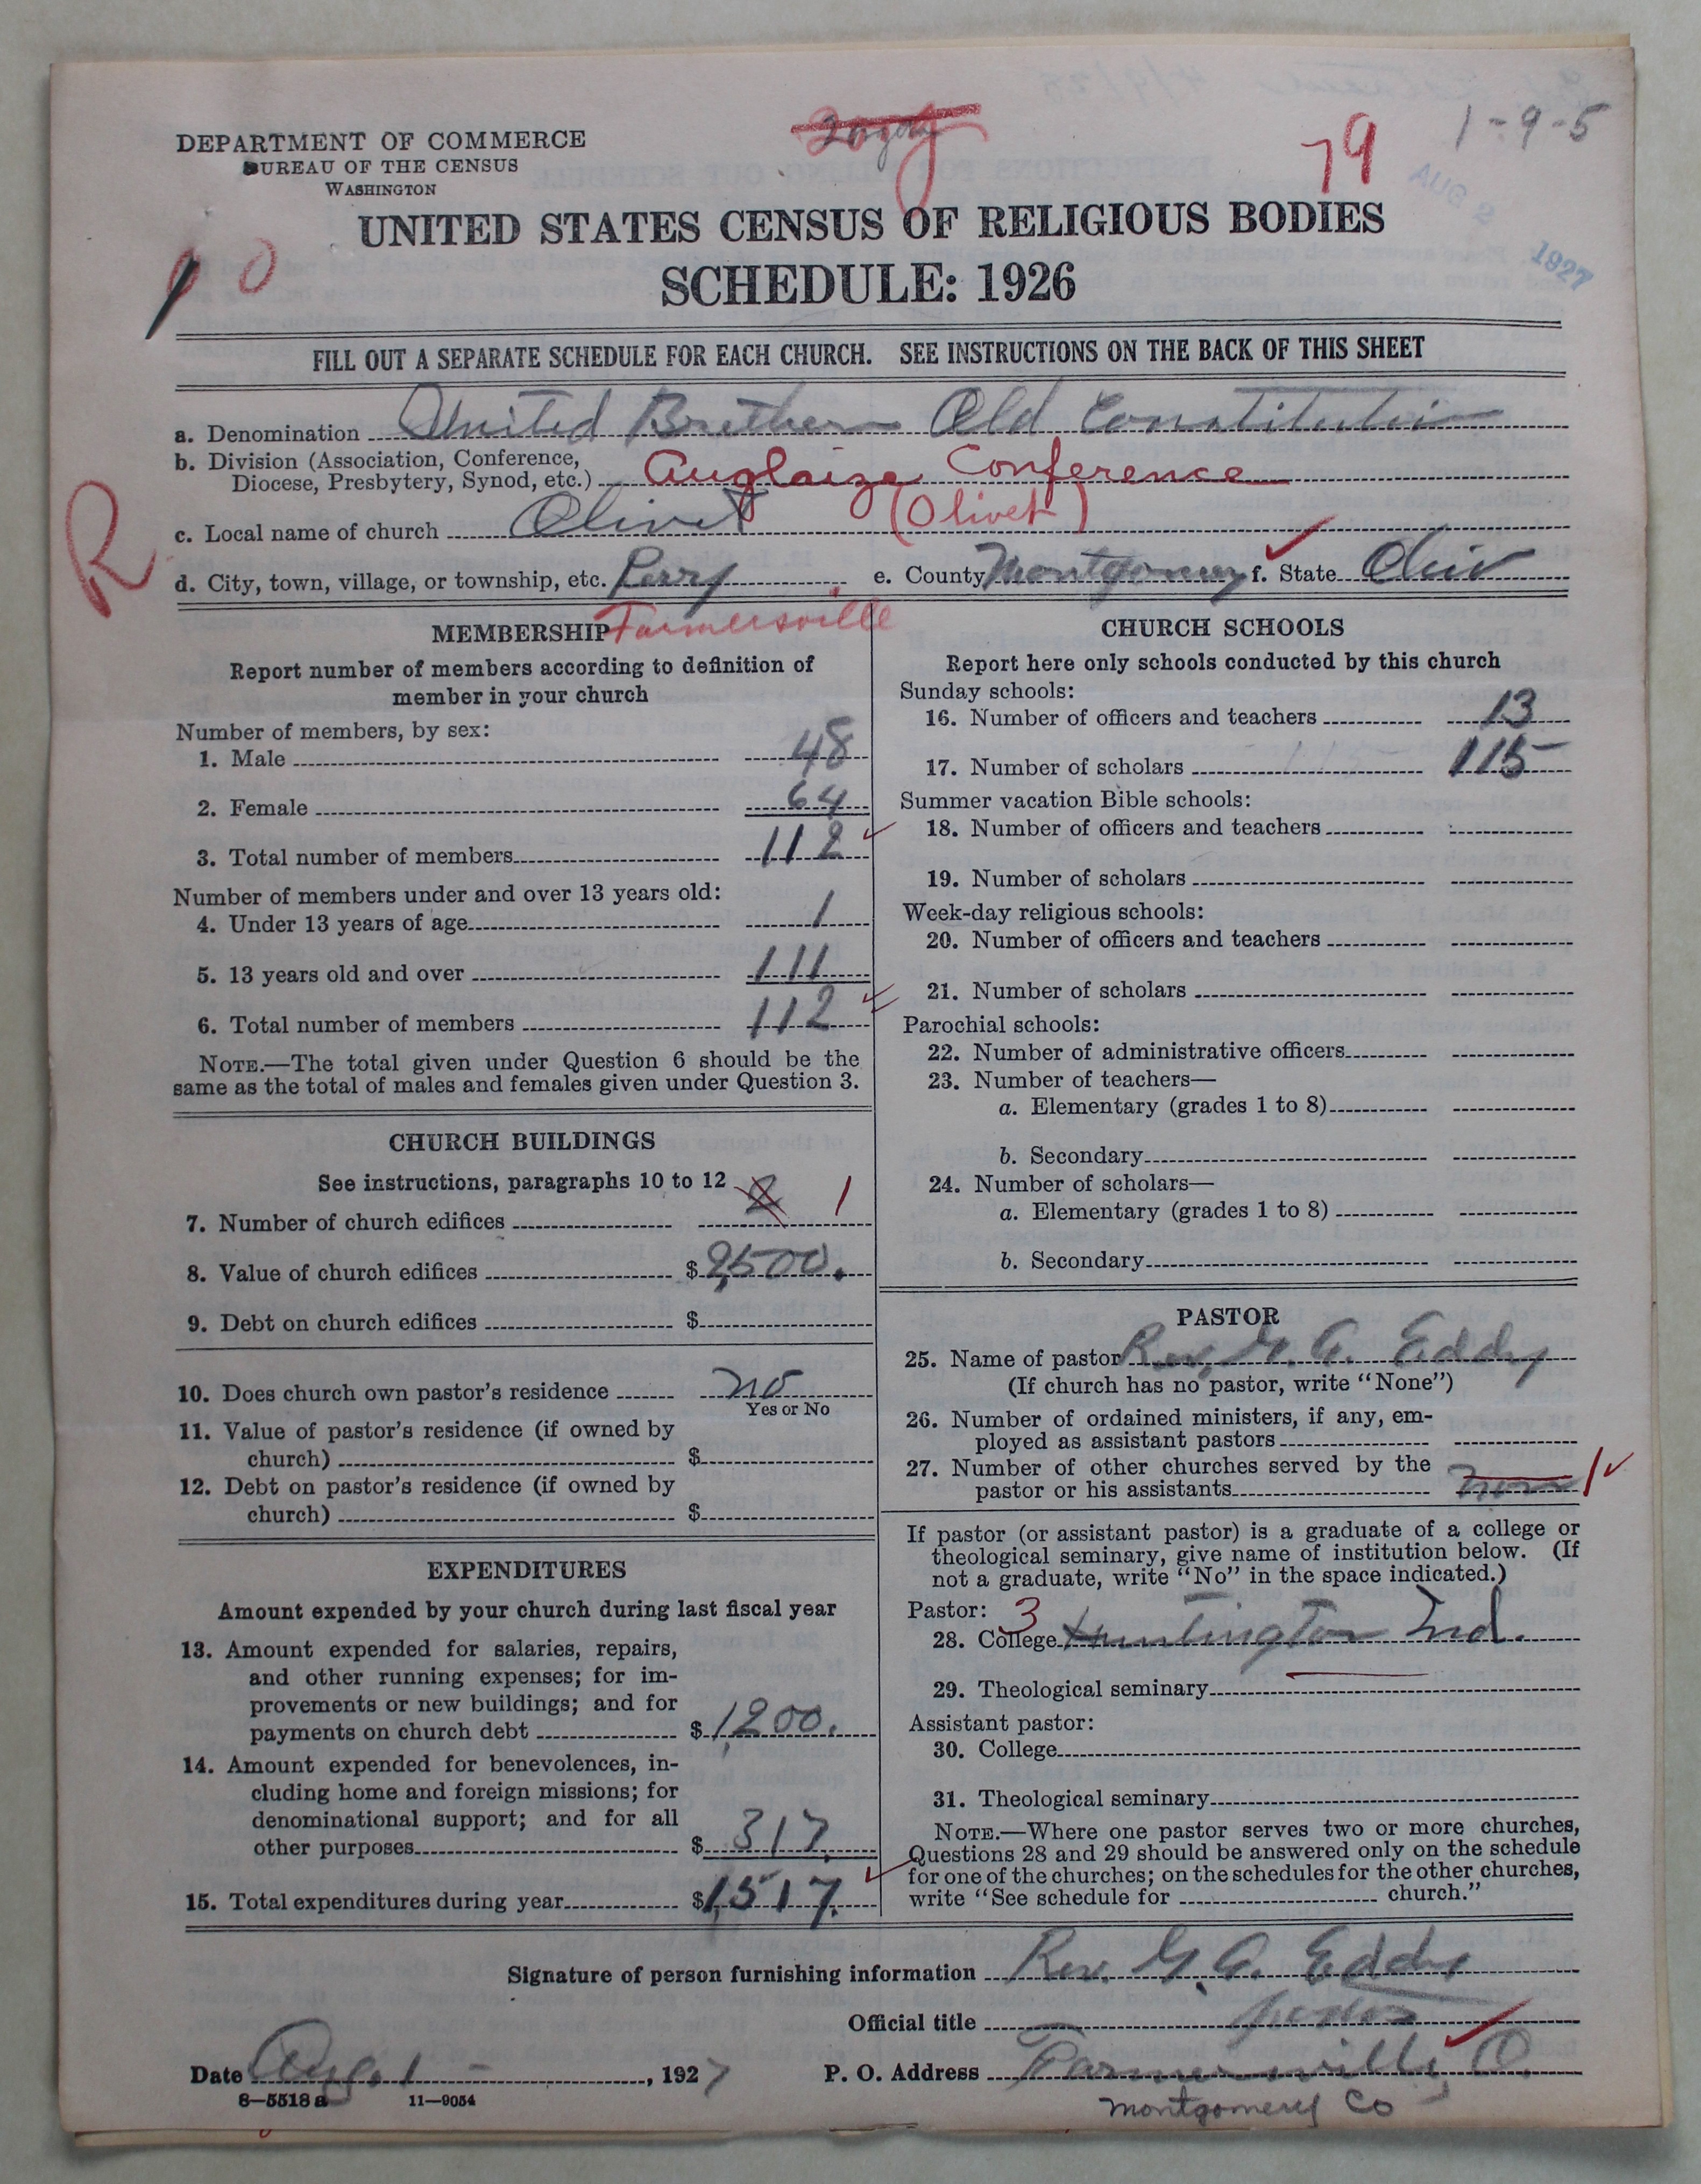 1-9-5
79
DEPARTMENT OF COMMERCE
BUREAU OF THE CENSUS
WASHINGTON
AUG 2 1927
UNITED STATES CENSUS OF RELIGIOUS BODIES
SCHEDULE: 1926
FILL OUT A SEPARATE SCHEDULE FOR EACH CHURCH. SEE INSTRUCTIONS ON THE BACK OF THIS SHEET
a. Denomination United Brethern Old Constitution
b. Division (Association, Conference,
Diocese, Presbytery, Synod, etc.) Auglaize Conference
c. Local name of church Olivet (Olivet)
R
d. City, town, village, or township, etc. Perry e. County Montgomery f. State Ohio
Farmersville
MEMBERSHIP
Report number of members according to definition of
member in your church
Number of members, by sex:
1. Male 48
2. Female 64
3. Total number of members 112
Number of members under and over 13 years old:
4. Under 13 years of age 1
5. 13 years old and over 111
6. Total number of members 112
NOTE.—The total given under Question 6 should be the
same as the total of males and females given under Question 3.
CHURCH BUILDINGS
See instructions, paragraphs 10 to 12
7. Number of church edifices 2 1
8. Value of church edifices $2,500.
9. Debt on church edifices $
10. Does church own pastor's residence no
Yes or No
11. Value of pastor's residence (if owned by
church) $
12. Debt on pastor's residence (if owned by
church) $
EXPENDITURES
Amount expended by your church during last fiscal year
13. Amount expended for salaries, repairs,
and other running expenses; for im-
provements or new buildings; and for
payments on church debt $1,200.
14. Amount expended for benevolences, in-
cluding home and foreign missions; for
denominational support; and for all
other purposes $317.
15. Total expenditures during year $1,517.
CHURCH SCHOOLS
Report here only schools conducted by this church
Sunday schools:
16. Number of officers and teachers 13
17. Number of scholars 115
Summer vacation Bible schools:
18. Number of officers and teachers
19. Number of scholars
Week-day religious schools:
20. Number of officers and teachers
21. Number of scholars
Parochial schools:
22. Number of administrative officers
23. Number of teachers—
a. Elementary (grades 1 to 8)
b. Secondary
24. Number of scholars—
a. Elementary (grades 1 to 8)
b. Secondary
PASTOR
25. Name of pastor Rev. G. A. Eddy
(If church has no pastor, write "None")
26. Number of ordained ministers, if any, em-
ployed as assistant pastors
27. Number of other churches served by the
pastor or his assistants none 1
If pastor (or assistant pastor) is a graduate of a college or
theological seminary, give name of institution below. (If
not a graduate, write "No" in the space indicated.)
Pastor: 3
28. College Huntington Ind.
29. Theological seminary
Assistant pastor:
30. College
31. Theological seminary
NOTE.—Where one pastor serves two or more churches,
Questions 28 and 29 should be answered only on the schedule
for one of the churches; on the schedules for the other churches,
write "See schedule for church."
Signature of person furnishing information Rev. G. A. Eddy
Official title pastor
Date Aug. 1 - , 1927 P. O. Address Farmersville, O.
Montgomery Co
8-5518a 11-9054